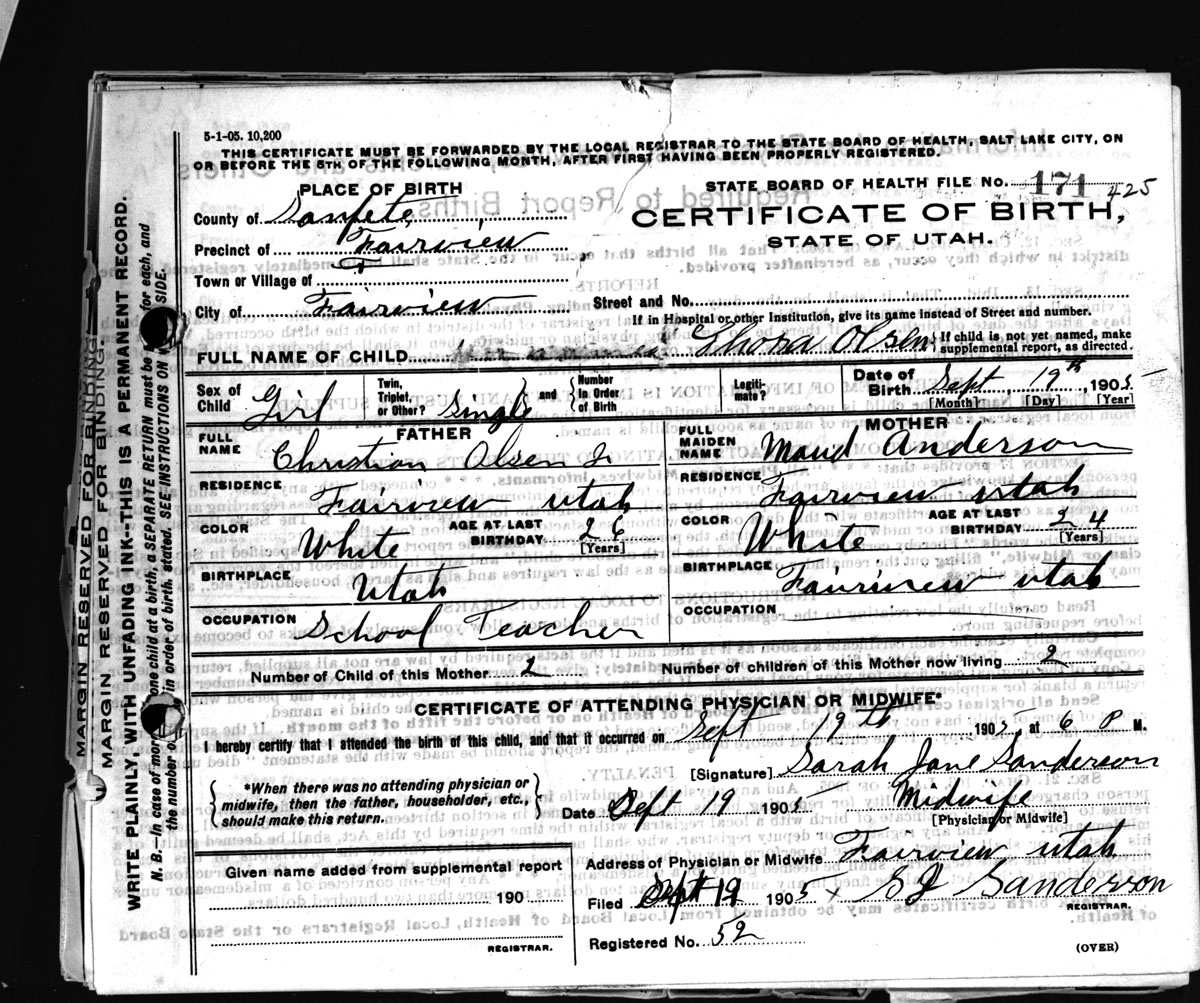 5-1-05. 10,200
THIS CERTIFICATE MUST BE FORWARDED BY THE LOCAL REGISTRAR TO THE STATE BOARD OF HEALTH, SALT LAKE CITY, ON
OR BEFORE THE 5TH OF THE FOLLOWING MONTH, AFTER FIRST HAVING BEEN PROPERLY REGISTERED.
PLACE OF BIRTH
County of Sanpete
Precinct of Fairview
Town or Village of
City of Fairview
STATE BOARD OF HEALTH FILE No. 171 425
CERTIFICATE OF BIRTH,
STATE OF UTAH.
Street and No.
If in Hospital or other Institution, give its name instead of Street and number.
FULL NAME OF CHILD Olsen
If child is not yet named, make
supplemental report, as directed.
Sex of Child Girl
Twin, Triplet, or Other? Single
and
Number in Order of Birth
Legiti-mate?
Date of Birth Sept 19th 1905
[Month] [Day] [Year]
FATHER
FULL NAME Christian Olsen Jr
RESIDENCE Fairview Utah
COLOR White
AGE AT LAST BIRTHDAY 26 [Years]
BIRTHPLACE Utah
OCCUPATION School Teacher
MOTHER
FULL MAIDEN NAME Maud Anderson
RESIDENCE Fairview Utah
COLOR White
AGE AT LAST BIRTHDAY 24 [Years]
BIRTHPLACE Fairview Utah
OCCUPATION
Number of Child of this Mother 2
Number of children of this Mother now living 2
CERTIFICATE OF ATTENDING PHYSICIAN OR MIDWIFE*
I hereby certify that I attended the birth of this child, and that it occurred on Sept 19th 1905, at 6 P M.
[Signature] Sarah Jane Sanderson
*When there was no attending physician or
midwife, then the father, householder, etc.,
should make this return.
Date Sept 19 1905
Midwife
[Physician or Midwife]
Given name added from supplemental report
190
REGISTRAR.
Address of Physician or Midwife Fairview Utah
Filed Sept 19 1905 S J Sanderson
REGISTRAR.
Registered No. 52
(OVER)
MARGIN RESERVED FOR BINDING.
MARGIN RESERVED FOR BINDING.
WRITE PLAINLY, WITH UNFADING INK--THIS IS A PERMANENT RECORD.
N. B.—In case of more one child at a birth, a SEPARATE RETURN must be for each, and
the number in order of birth, stated. SEE INSTRUCTIONS ON SIDE.